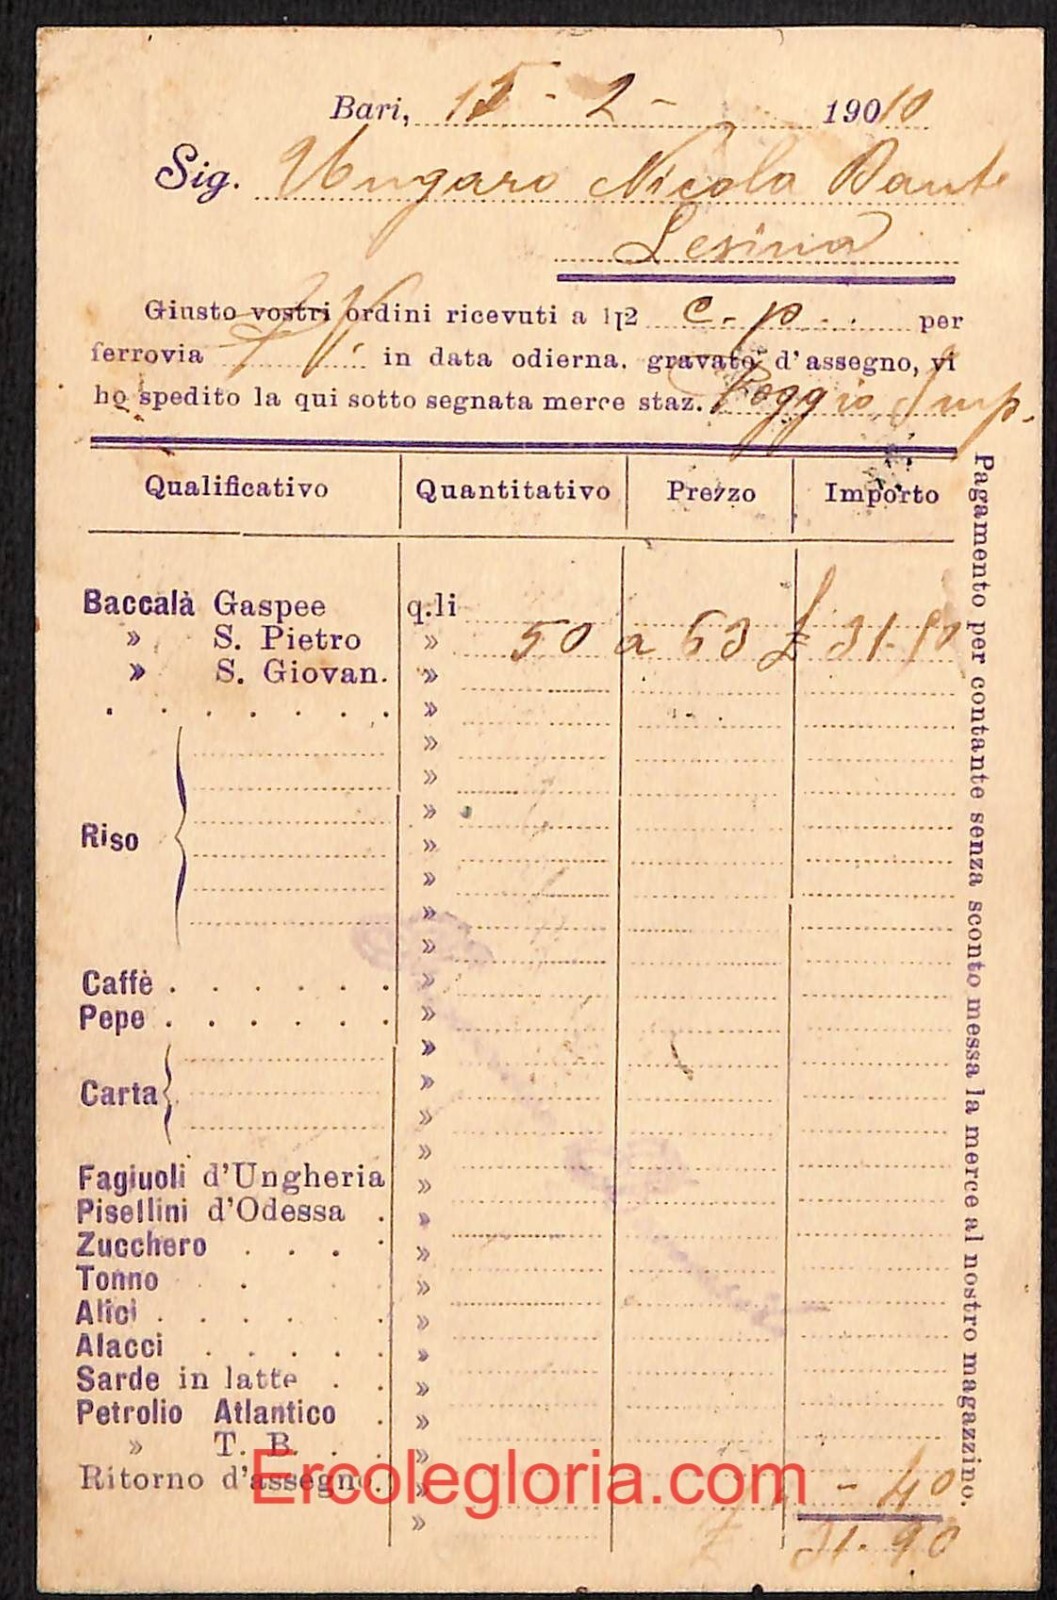 Bari, 15 - 2 - 19010
Sig. Ungaro Nicola Dante
Lesina
Giusto vostri ordini ricevuti a 1|2 c. p. per
ferrovia in data odierna. gravato d'assegno, vi
ho spedito la qui sotto segnata merce staz. Poggio Imp.
Qualificativo Quantitativo Prezzo Importo
Baccalà Gaspee q.li
» S. Pietro » 50 a 63 £ 31.50
» S. Giovan. »
»
»
»
»
Riso »
»
»
»
Caffè »
Pepe »
»
Carta »
»
»
Fagiuoli d'Ungheria »
Pisellini d'Odessa »
Zucchero »
Tonno »
Alici »
Alacci »
Sarde in latte »
Petrolio Atlantico »
» T. B. »
Ritorno d'assegno. » - 40
» £ 31.90
Pagamento per contante senza sconto messa la merce al nostro magazzino.
Ercolegloria.com